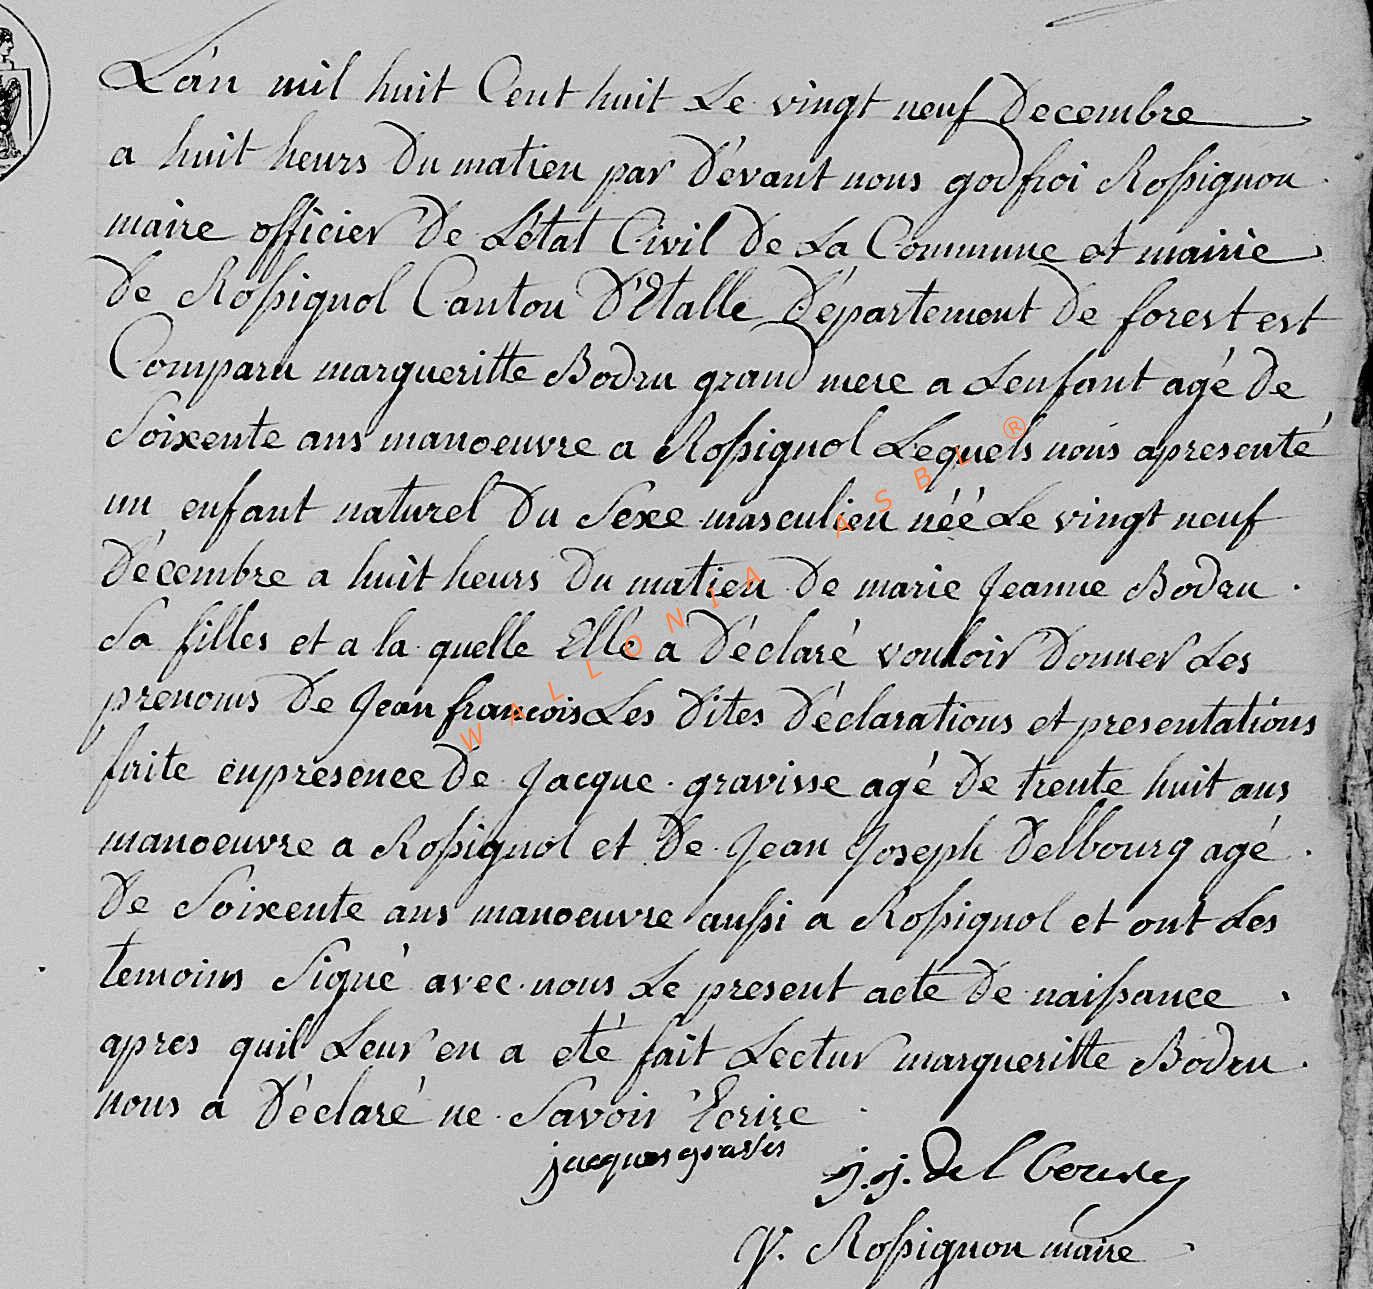 L'an mil huit Cent huit Le vingt neuf Decembre
a huit heurs Du matien par D'evant nous godfroi Roßignon
maire officier De L'état Civil De La Commune et mairie
De Roßignol Canton D'Etalle Département De forest est
Comparu margueritte Bodru grand mere a Lenfant agé De
Soixente ans manoeuvre a Roßignol Lequels nous apresenté
un enfant naturel Du Sexe masculien néé Le vingt neuf
Décembre a huit heurs Du matien De marie Jeanne Bodru
Sa filles et a la quelle Elle a Déclaré vouloir Donner Les
prenoms De Jean francois Les Dites Déclarations et presentations
faite enpresence De Jacque gravisse agé De trente huit ans
manoeuvre a Roßignol et De Jean Joseph Delbourg agé
De Soixente ans manoeuvre außi a Roßignol et ont Les
temoins Signé avec nous Le present acte De naißance
apres quil Leur en a eté fait Lectur margueritte Bodru
nous a Déclaré ne Savoir Ecrire
jacques gravis
j.j. Delbourg
G. Roßignon maire
WALLONIA ASBL ®